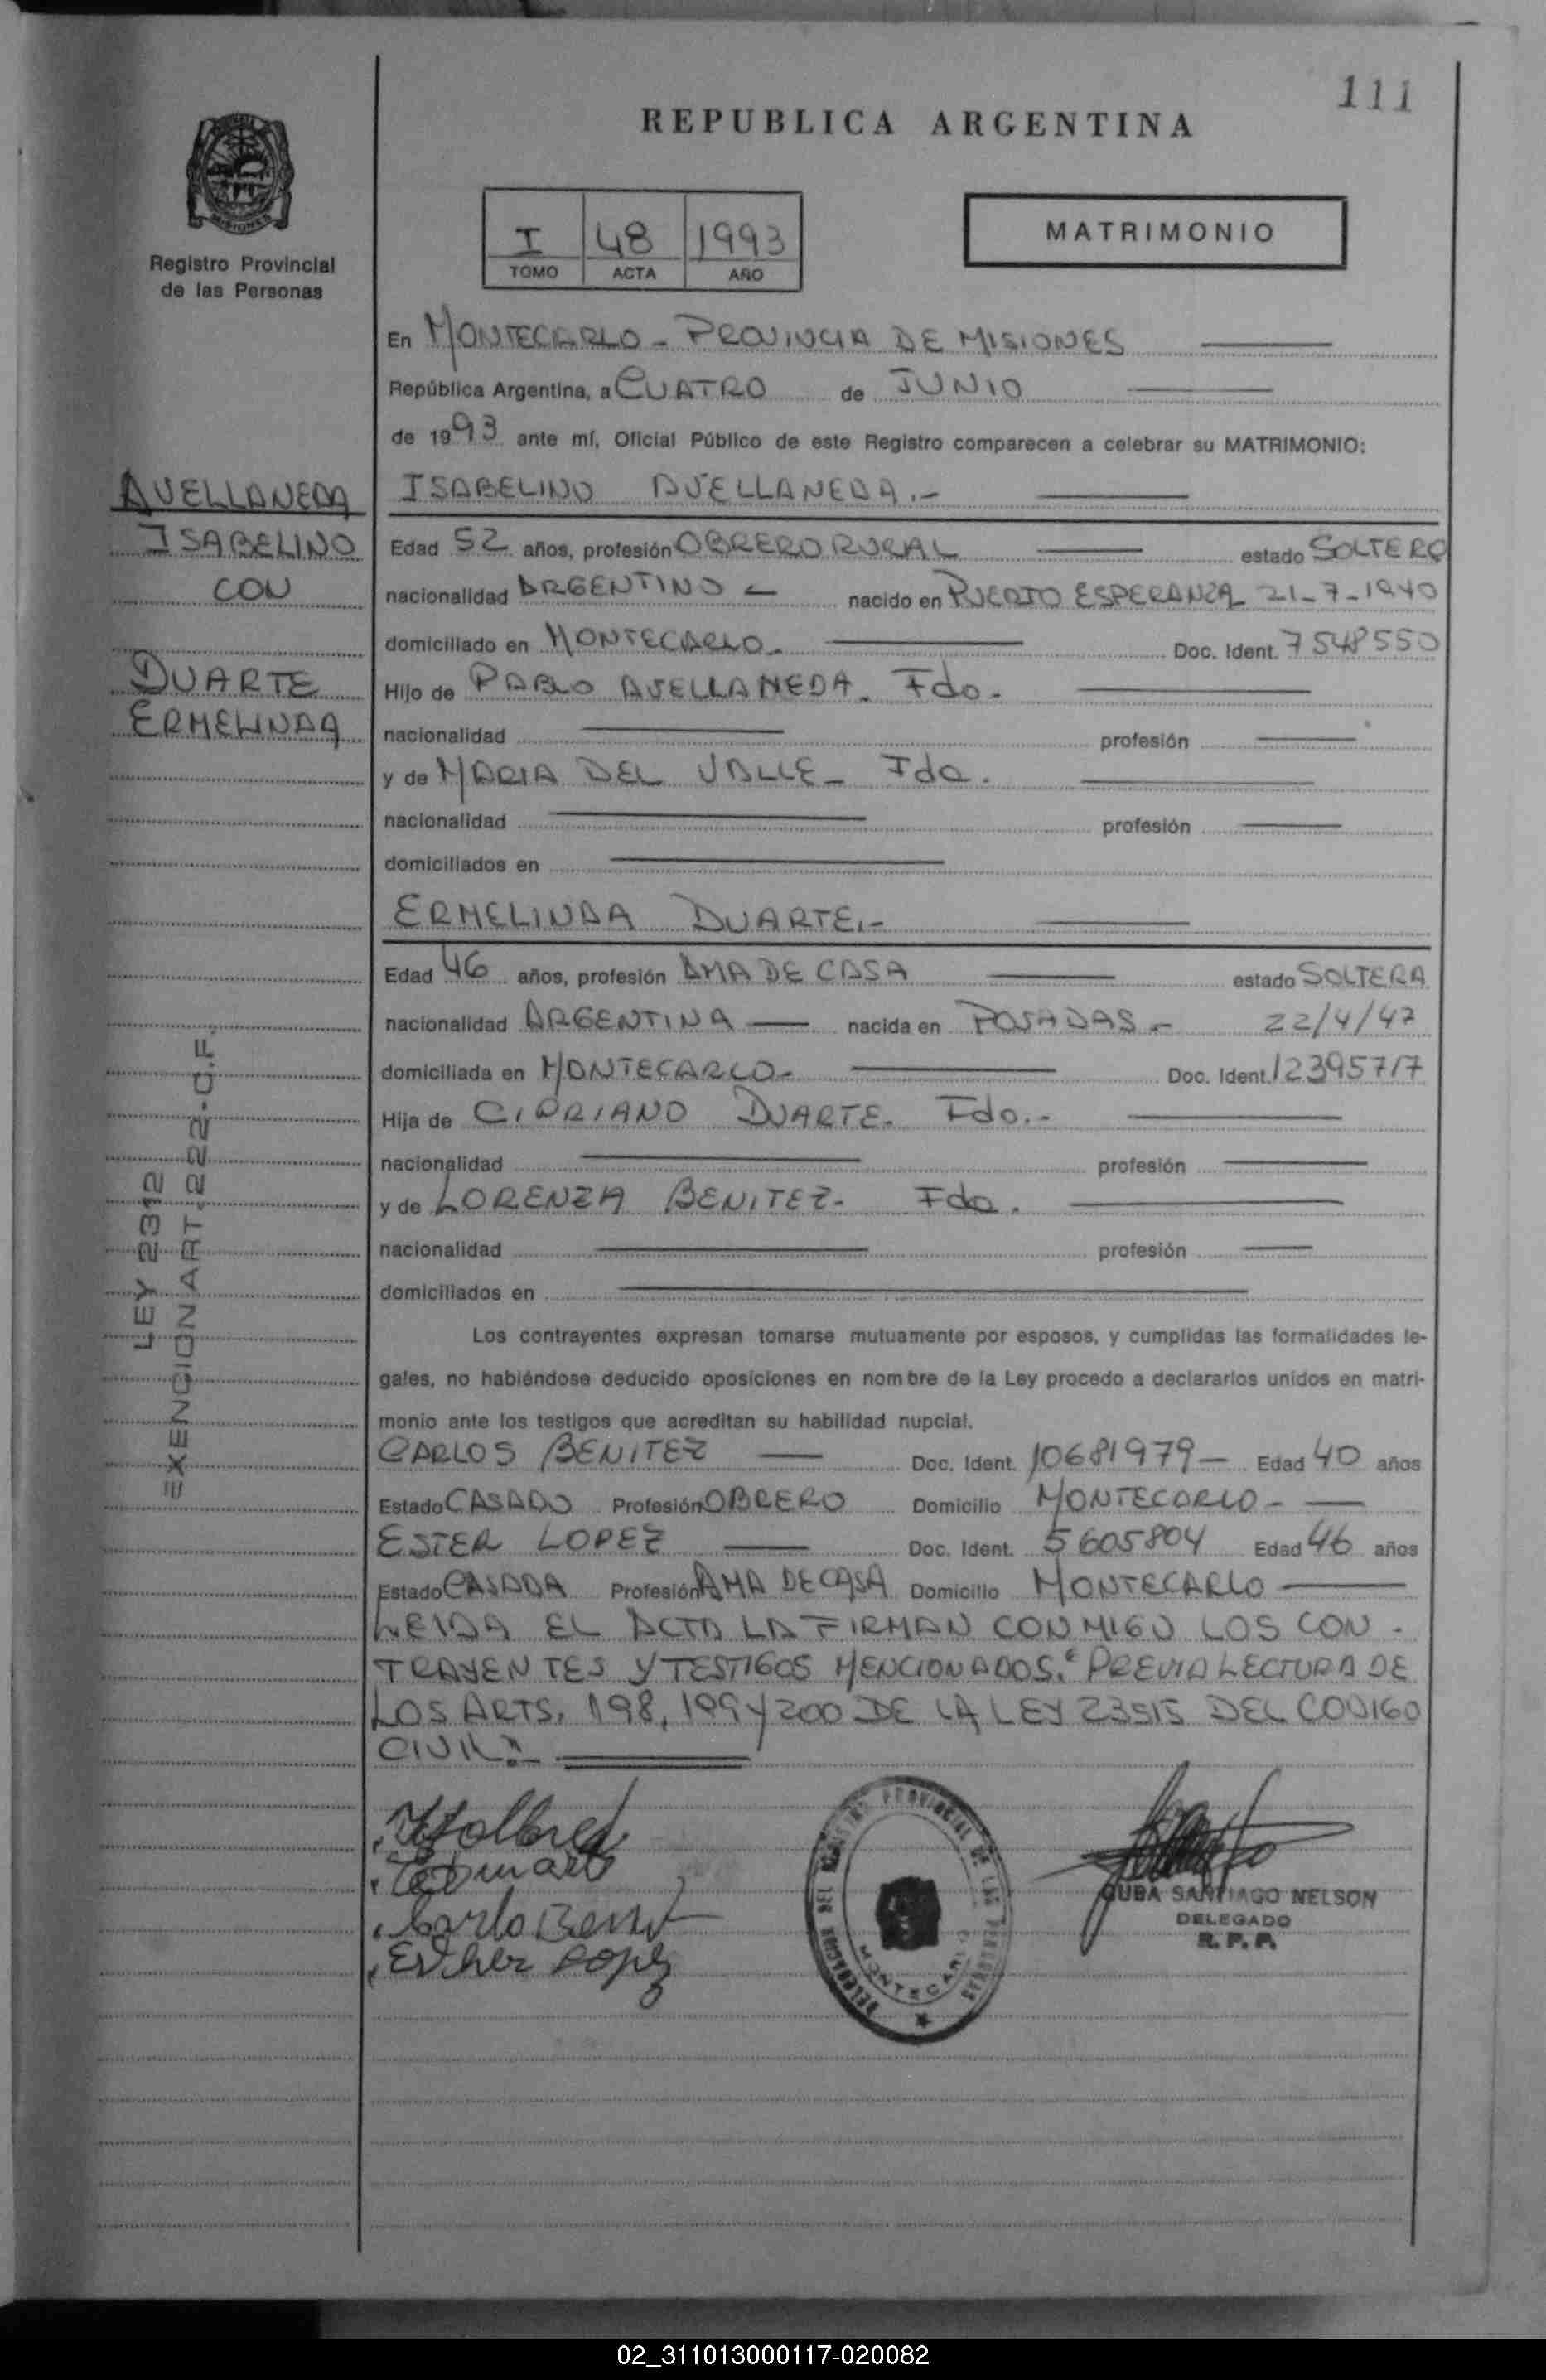 111
REPUBLICA ARGENTINA
MISIONES
Registro Provincial
de las Personas
I 48 1993
TOMO ACTA AÑO
MATRIMONIO
En MONTECARLO - PROVINCIA DE MISIONES
República Argentina, a CUATRO de JUNIO
de 1993 ante mí, Oficial Público de este Registro comparecen a celebrar su MATRIMONIO:
AVELLANEDA
ISABELINO
CON
DUARTE
ERMELINDA
ISABELINO AVELLANEDA.-
Edad 52 años, profesión OBRERO RURAL estado SOLTERO
nacionalidad ARGENTINO - nacido en PUERTO ESPERANZA 21-7-1940
domiciliado en MONTECARLO- Doc. Ident. 7548550
Hijo de PABLO AVELLANEDA. Fdo.
nacionalidad profesión
y de MARIA DEL VALLE - Fda.
nacionalidad profesión
domiciliados en
ERMELINDA DUARTE.-
Edad 46 años, profesión AMA DE CASA estado SOLTERA
nacionalidad ARGENTINA nacida en POSADAS - 22/4/47
domiciliada en MONTECARLO- Doc. Ident. 12395717
Hija de CIPRIANO DUARTE. Fdo.-
nacionalidad profesión
y de LORENZA BENITEZ- Fda.
nacionalidad profesión
domiciliados en
LEY 2312
EXENCION ART. 222-C.F.
Los contrayentes expresan tomarse mutuamente por esposos, y cumplidas las formalidades le-
gales, no habiéndose deducido oposiciones en nombre de la Ley procedo a declararlos unidos en matri-
monio ante los testigos que acreditan su habilidad nupcial.
CARLOS BENITEZ Doc. Ident. 10681979 Edad 40 años
Estado CASADO Profesión OBRERO Domicilio MONTECARLO-
ESTER LOPEZ Doc. Ident. 5605804 Edad 46 años
Estado CASADA Profesión AMA DE CASA Domicilio MONTECARLO
LEIDA EL ACTA LA FIRMAN CONMIGO LOS CON-
TRAYENTES Y TESTIGOS MENCIONADOS. "PREVIA LECTURA DE
LOS ARTS. 198, 199 Y 200 DE LA LEY 23515 DEL CODIGO
CIVIL".-
Esther Lopez
DELEGACION DEL REGISTRO PROVINCIAL DE LAS PERSONAS
MONTECARLO
CUBA SANTIAGO NELSON
DELEGADO
R. P. P.
02_311013000117-020082